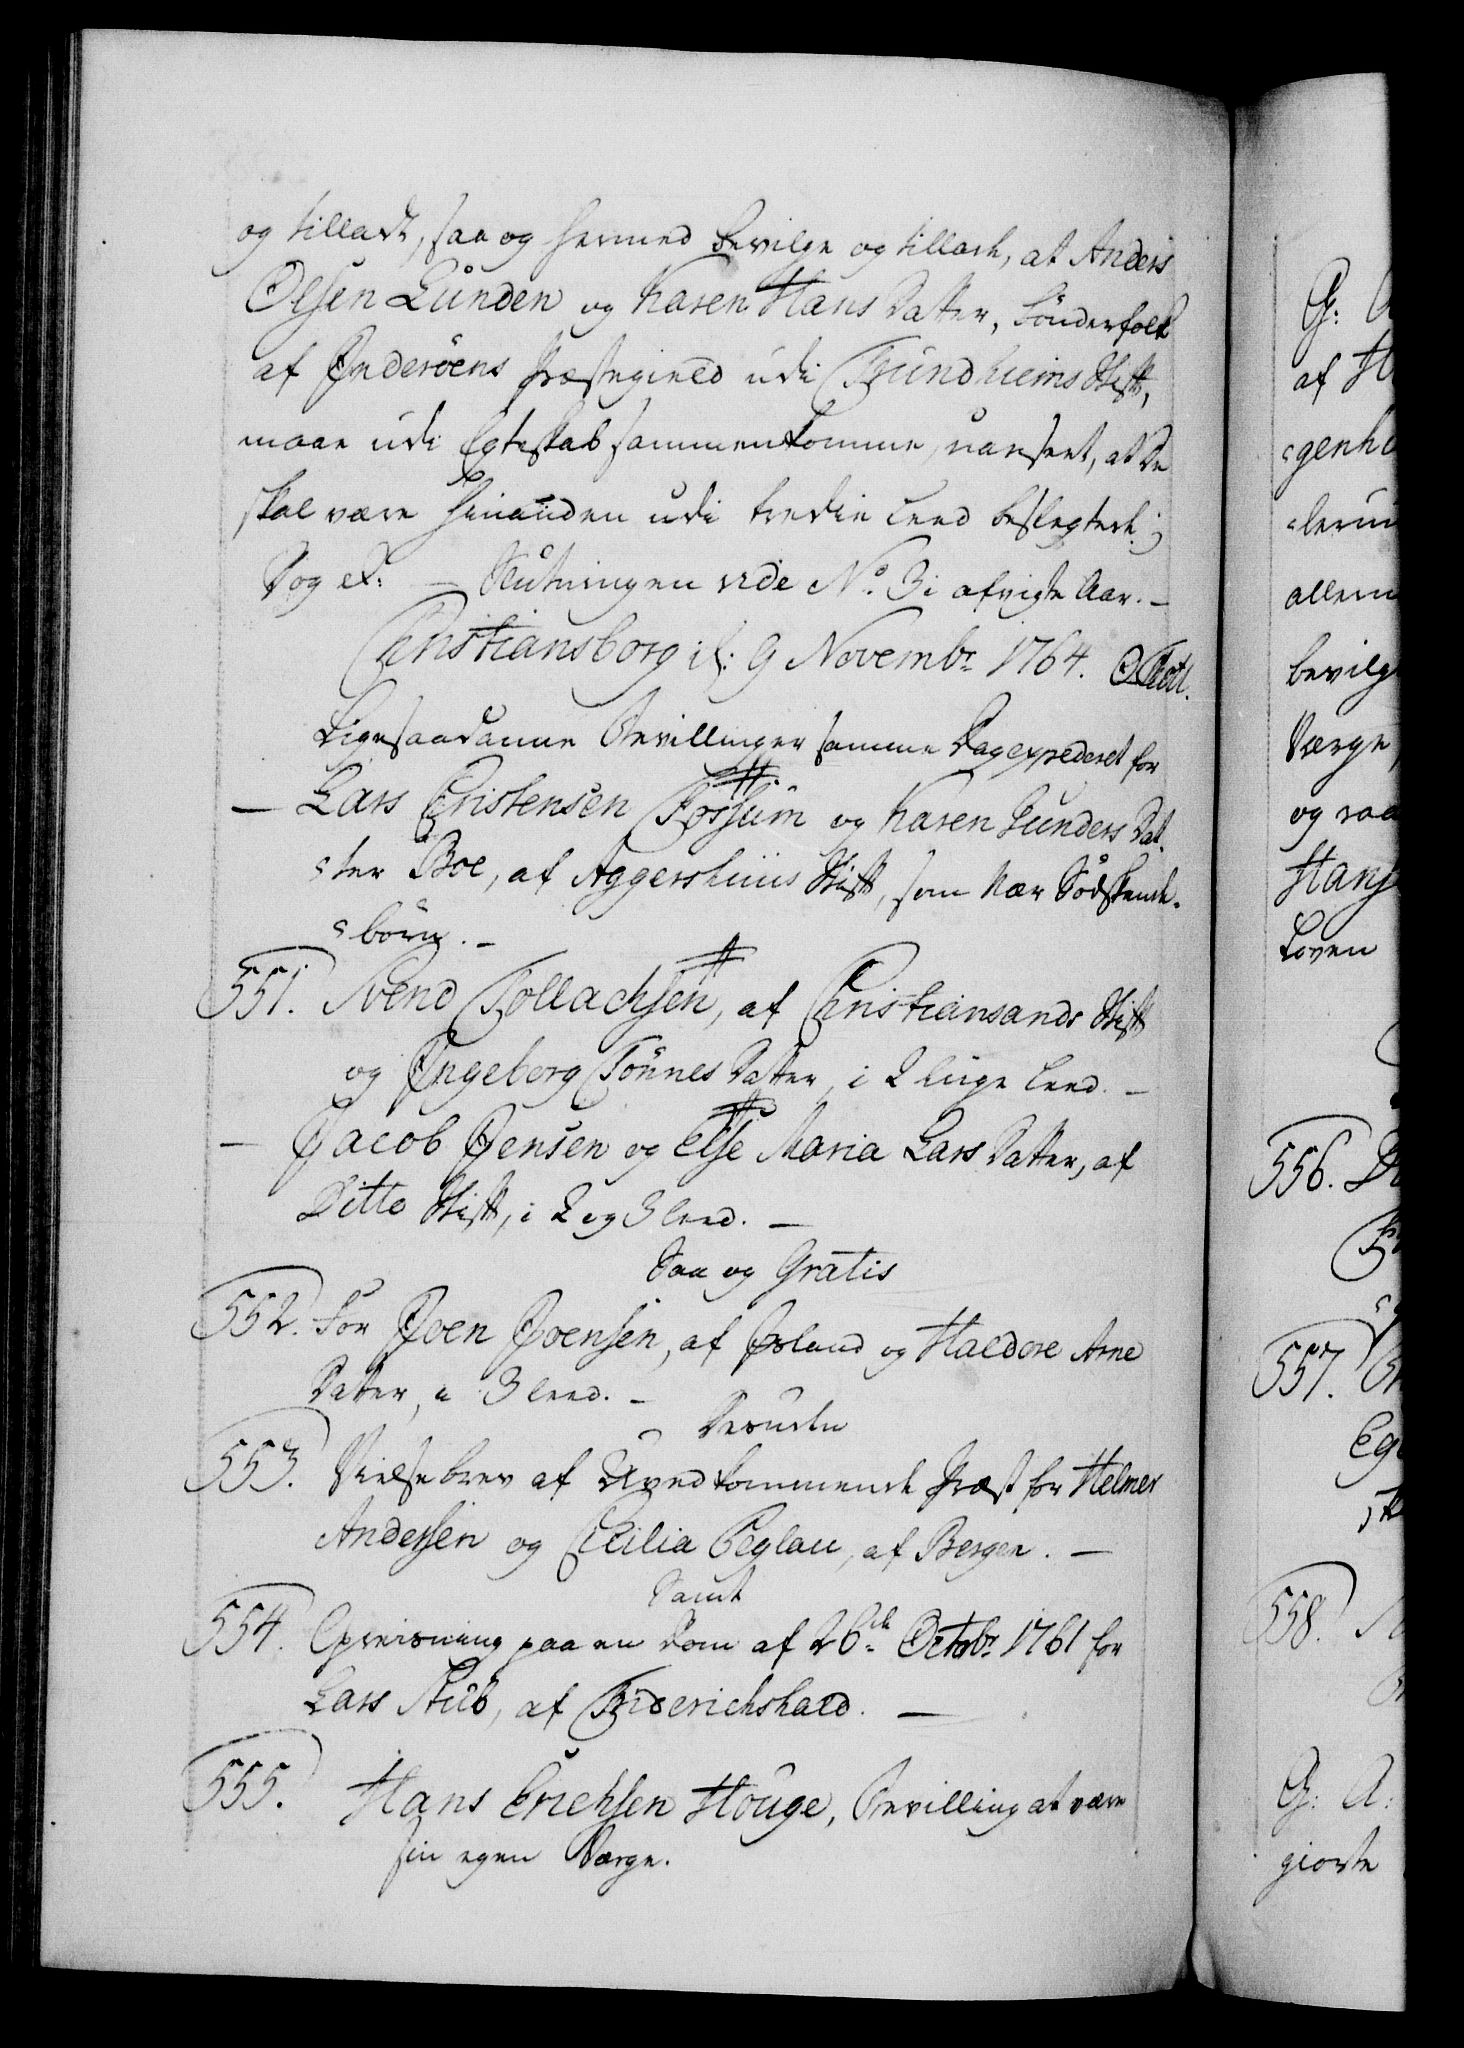 og tilladt, saa og hermed bevilge og tillade, at Anders
Olsen Lunden og Karen Hans Datter, Bönderfolk
af Inderöens Præstegield udi Trundhiems Stift,
maae udi Egteskab sammenkomme, uanseet, at de
skal være hinanden udi tredie Leed beslegtede;
Dog et: — Slutningen vide No. 3 i afvigte Aar. —
Christiansborg d: 9 Novembr. 1764.
Ligesaadanne Bevillinger samme Dag expederet for
— Lars Christensen Fossum og Karen Gunders Dat-
ter Boe, af Aggershuus Stift, som Nær Södskende-
börn. —
551. Svend Tollachsen, af Christiansands Stift
og Ingeborg Tönnes Datter, i 2 liige Leed. —
— Jacob Jensen og Else Maria Lars Datter, af
Ditto Stift, i 2 og 3 Leed. —
Saa og Gratis
552. For Joen Joensen, af Island og Haldore Arne
Datter, i 3 Leed. —
Desuden
553. Vielsebrev af Uvedkommende Præst for Helmer
Andersen og Cicilia Peglau, af Bergen. —
Samt
554. Opreisning paa en Dom af 26de Octobr. 1761 for
Lars Stub, af Friderichshald. —
555. Hans Erichsen Houge, Bevilling at være
sin egen Værge.
G:
af H
genh
allern
bevilg
Værge
og raa
Hans
Loven
556.
557.
Eg
558.
G: A:
giorte